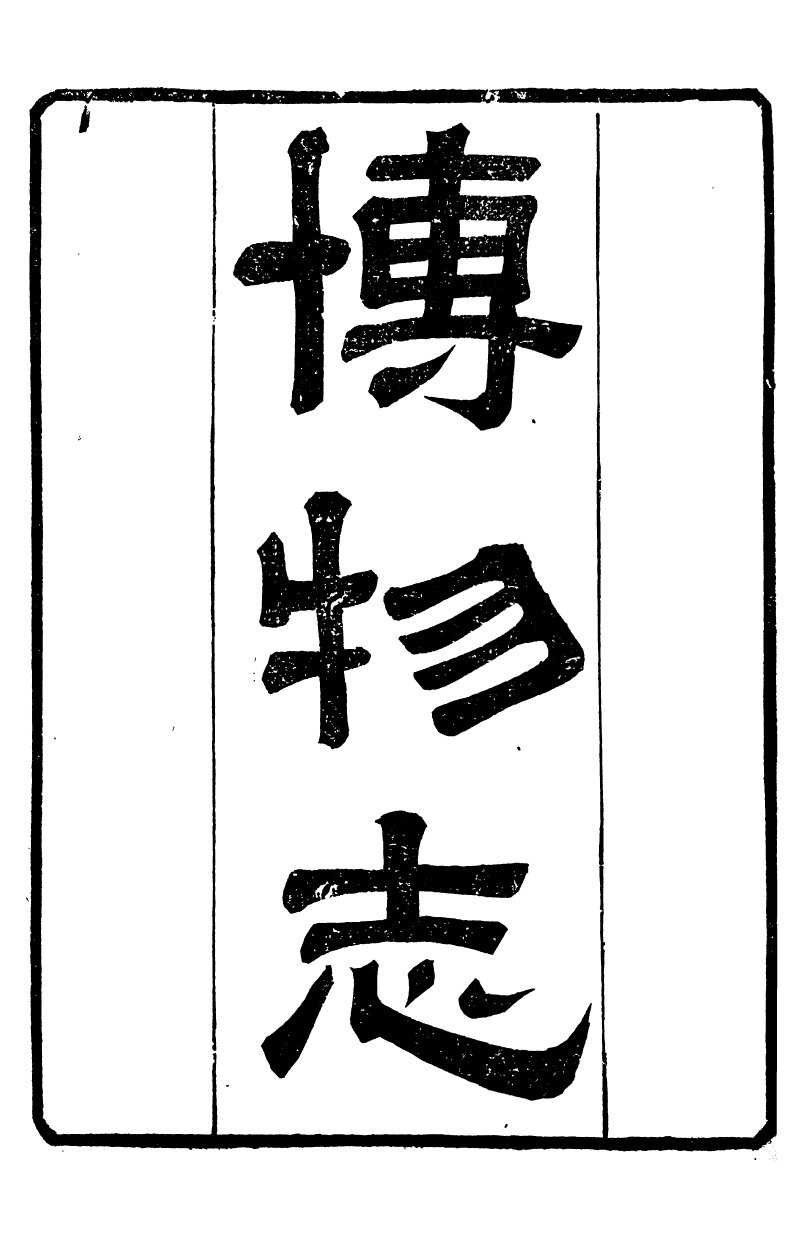 博物志